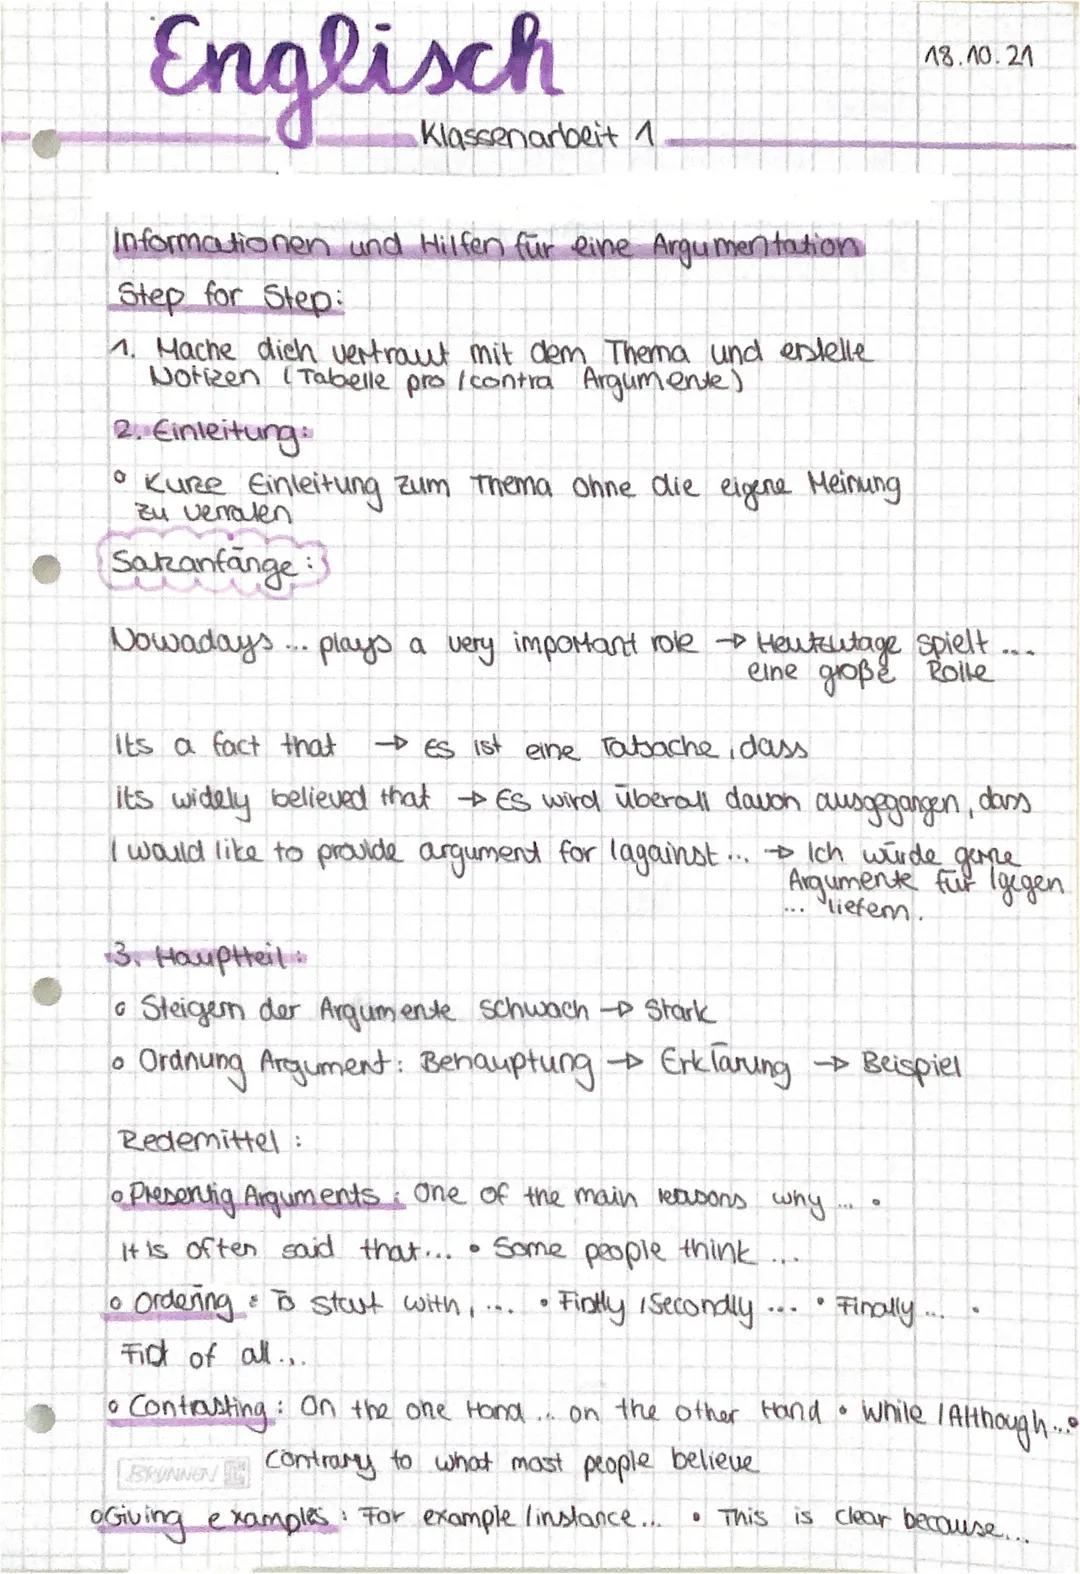 Englisch
18.10.21
Klassenarbeit 1
Informationen und Hilfen für eine Argumentation
Step for Step:
1. Mache dich vertraut mit dem Thema und erstelle
Notizen (Tabelle pro / contra Argumente)
2. Einleitung:
Kurze Einleitung zum Thema ohne die eigene Meinung
zu verraten
Satzanfänge:
Nowadays ... plays a very important role → Heutzutage spielt ...
eine große Rolle
Its a fact that → Es ist eine Tatsache, dass
its widely believed that → Es wird überall davon ausgegangen, dass
I would like to provide argument for / against ... → Ich würde gerne
Argumente für / gegen
... liefern.
3. Hauptteil:
Steigern der Argumente schwach → Stark
Ordnung Argument: Behauptung → Erklärung → Beispiel
Redemittel:
Presentig Arguments: One of the main reasons why ... •
It is often said that ... • Some people think ...
Ordering: To start with, ... • Firstly / Secondly ... • Finally ... •
First of all ...
Contrasting: On the one Hand ... on the other Hand • While / Although ... •
Contrary to what most people believe
BRUNNEN
Giving examples: For example / instance ... • This is clear because ...